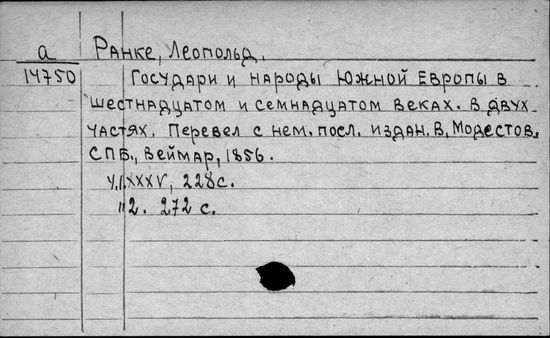 а
14750
Ранке, Леопольд.
Государи и народы Южной Европы в
шестнадцатом и семнадцатом веках. В двух
частях. Перевел с нем. посл. издан. В. Модестов.
СПБ., Веймар, 1856.
Ч.I. XXXV, 228 с.
" 2. 272 с.